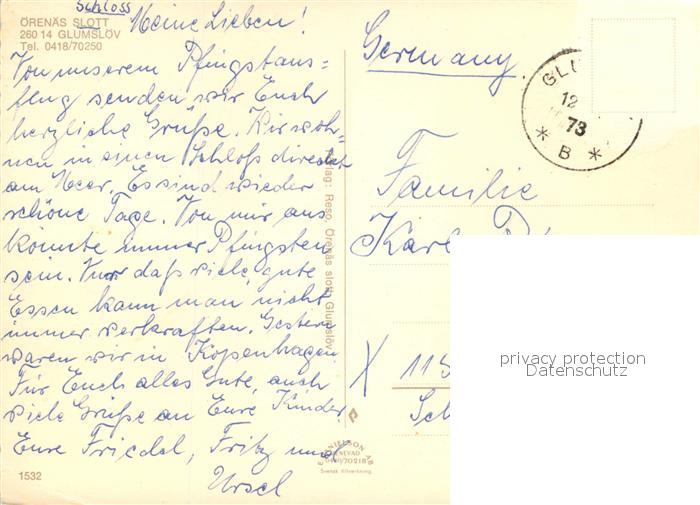 Schloss
ÖRENÄS SLOTT
260 14 GLUMSLÖV
Tel. 0418/70250
Meine Lieben!
Von unserem Pfingstaus=
flug senden wir Euch
herzliche Grüße. Wir woh-
nen in einen Schloß direckt
am Meer. Es sind wieder
schöne Tage. Von mir aus
könnte immer Pfingsten
sein. Nur daß viele, gute
Essen kann man nicht
immer verkraften. Gestern
waren wir in Kopenhagen.
Für Euch alles Gute, auch
viele Grüße an Eure Kinder.
Eure Friedel, Fritz und
Ursel
1532
Reso, Örenäs slott, Glumslöv
Svensk tillverkning
Germany.
GLU
12
73
* B *
Familie
Karl
X 115
Sch
privacy protection
Datenschutz